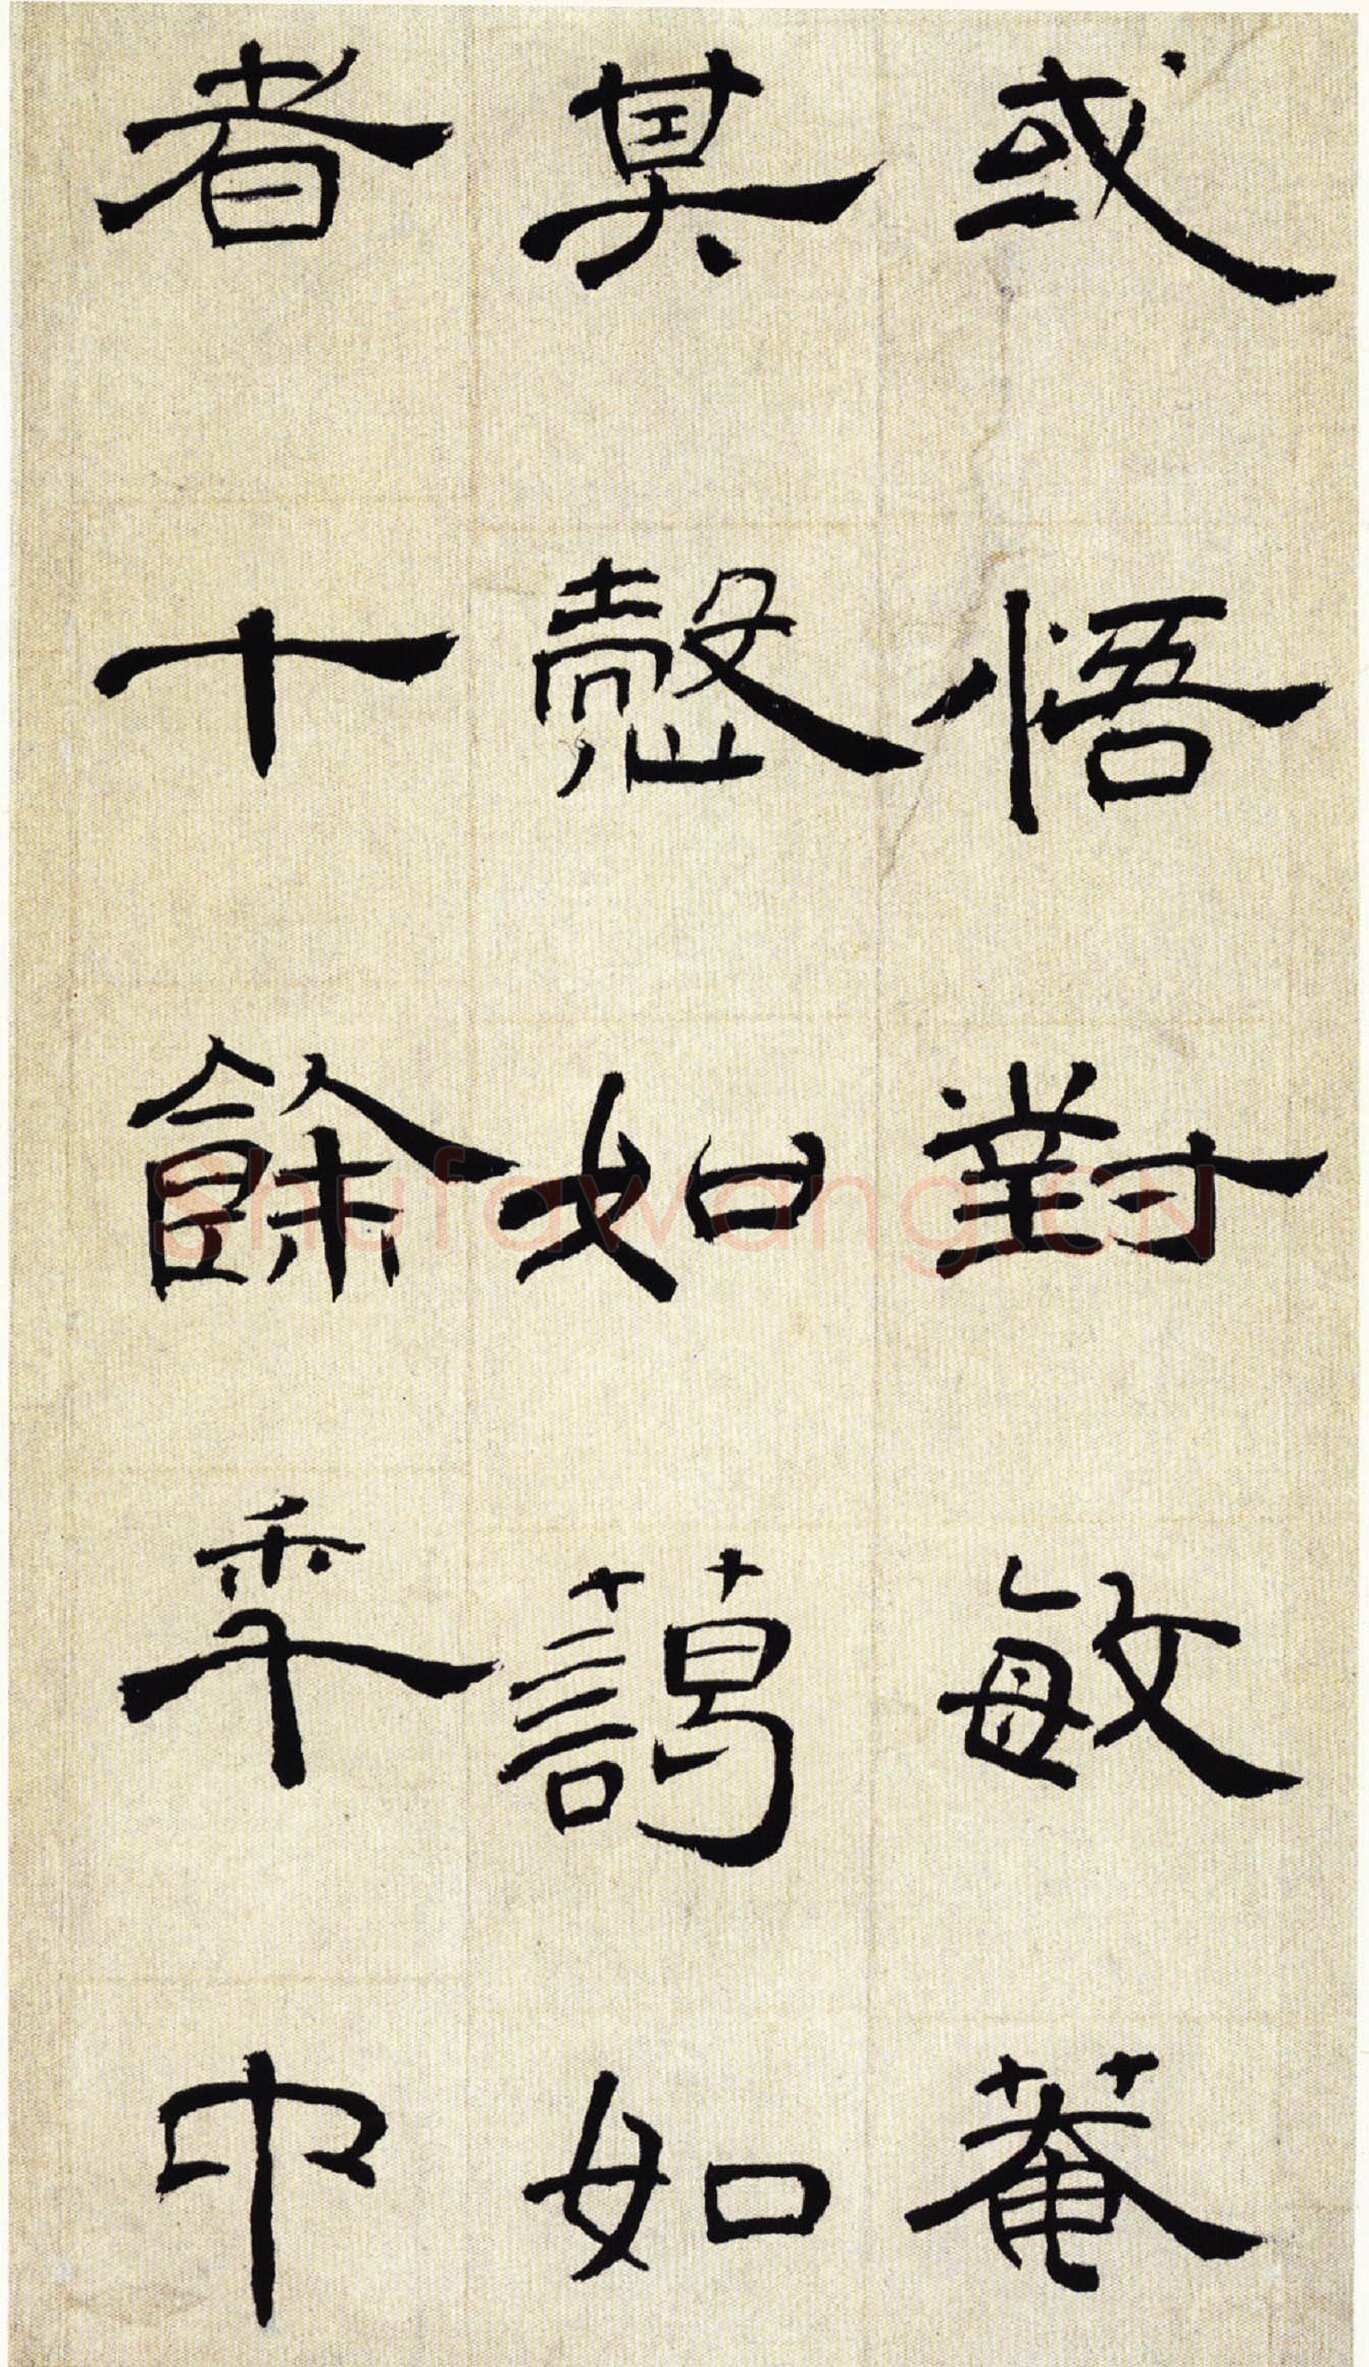 或悟對敏菴
其慤如如藹如
者十餘年中
shufawang.CN